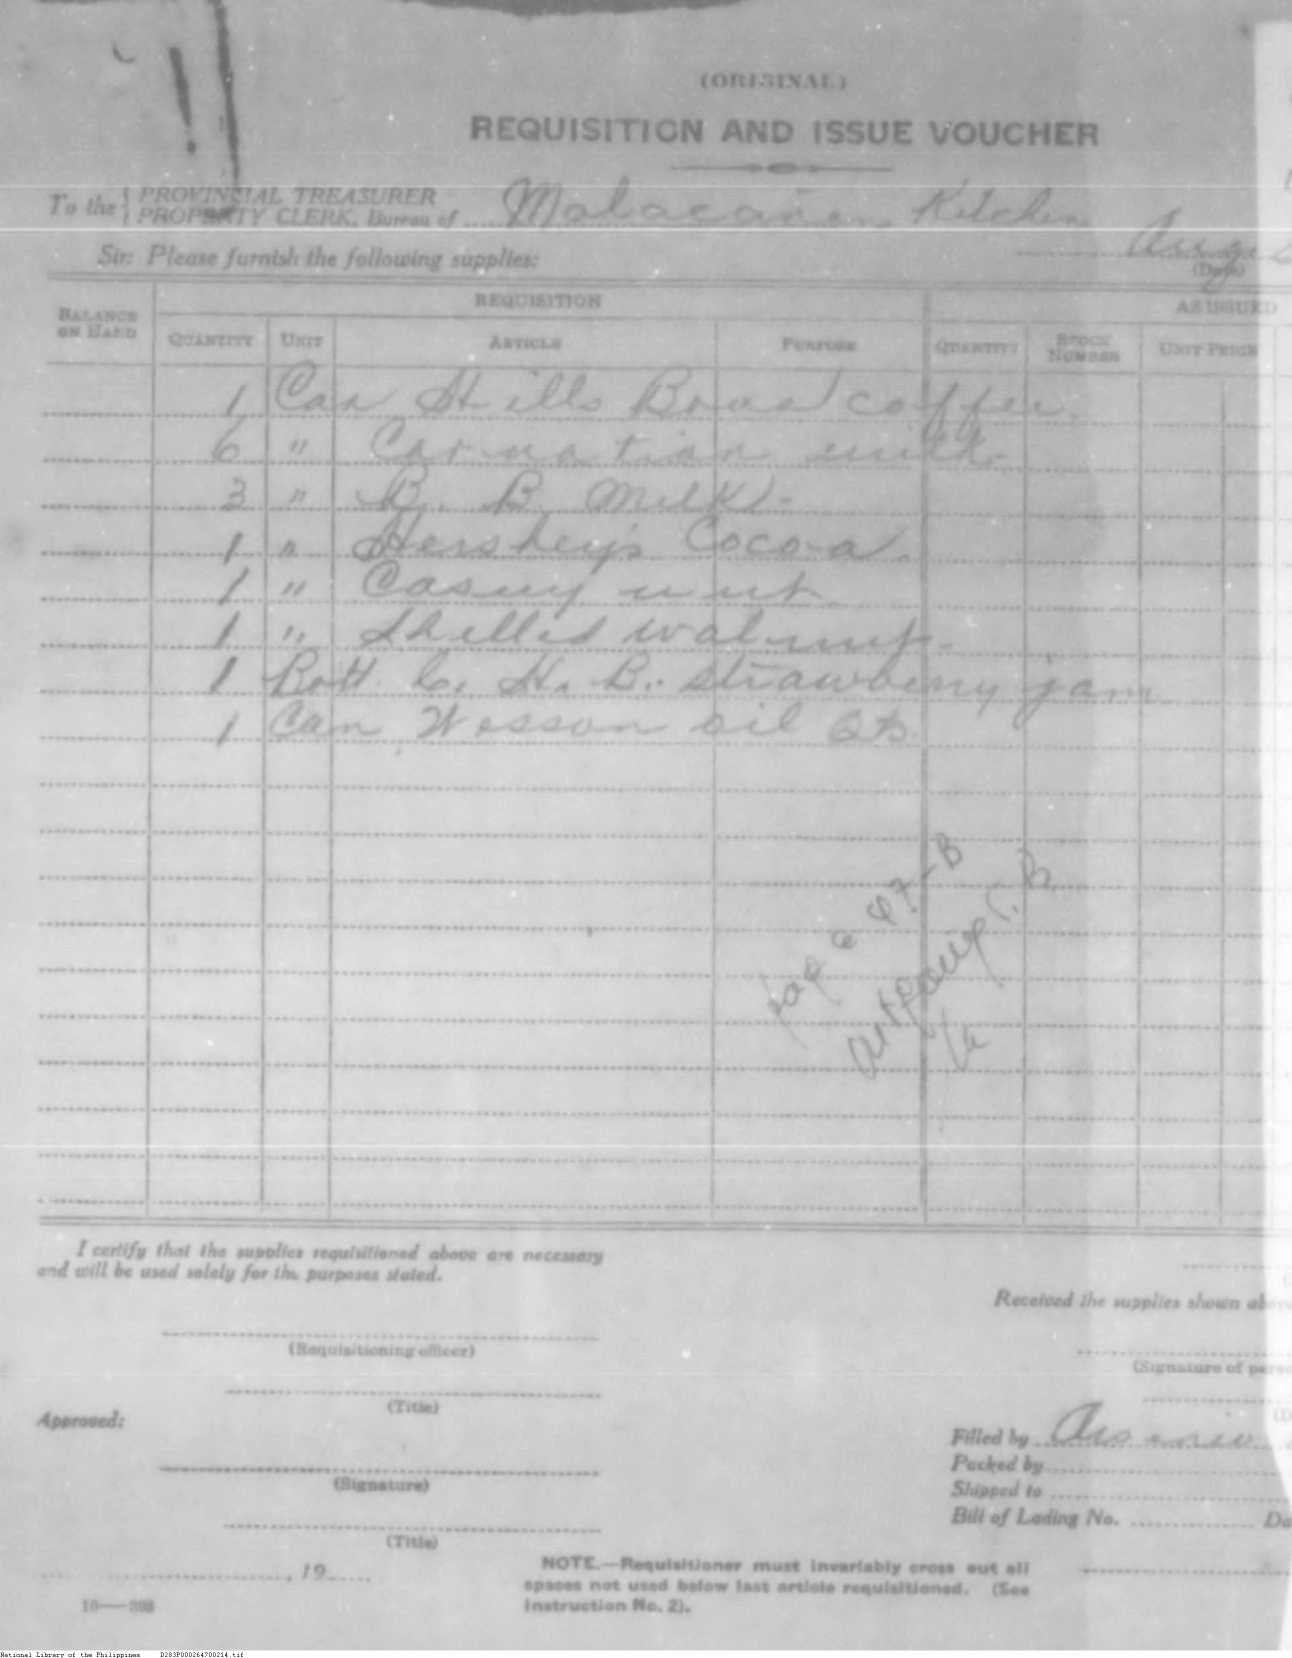 (ORIGINAL)
REQUISITION AND ISSUE VOUCHER
To the { PROVINCIAL TREASURER
PROPERTY CLERK, Bureau of Malacañan Kitchen
(Date)
Sir: Please furnish the following supplies:
BALANCE ON HAND
REQUISITION
AS ISSUED
QUANTITY UNIT ARTICLE PURPOSE QUANTITY STOCK NUMBER UNIT PRICE
1 Can Hills Bros coffee.
6 " Carnation milk.
3 " B. B. Milk.
1 " Hershey's Cocoa.
1 " Casuy nut
1 " Shelled walnut.
1 Bott. C. H. B. strawberry jam
1 Can Wesson oil
I certify that the supplies requisitioned above are necessary
and will be used solely for the purposes stated.
Received the supplies shown above
(Requisitioning officer)
(Signature of
(Title)
Approved:
Filled by
Packed by
(Signature)
Shipped to
Bill of Lading No.
(Title)
, 19
NOTE.—Requisitioner must invariably cross out all
spaces not used below last article requisitioned. (See
Instruction No. 2).
National Library of the Philippines D283P000264700214.tif